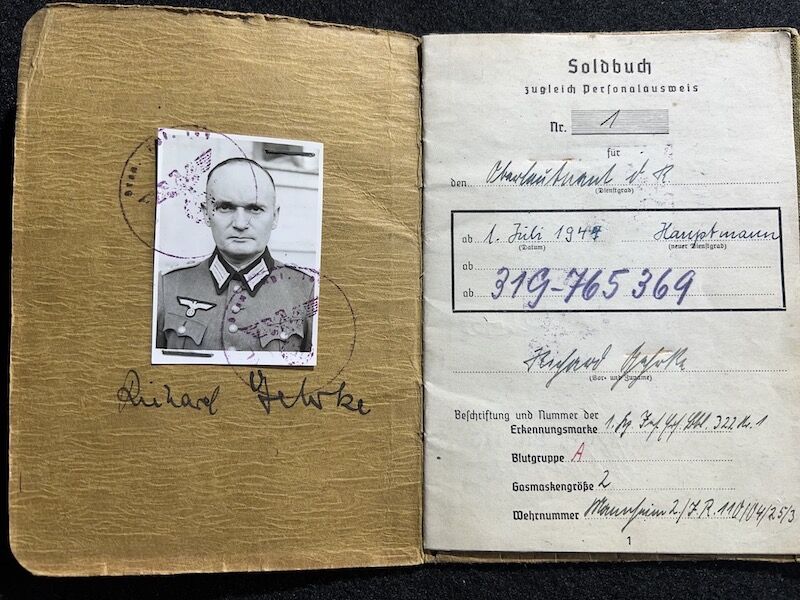 Richard Gehrke
Soldbuch
zugleich Personalausweis
Nr. 1
für
den Oberleutnant d. R
(Dienstgrad)
ab 1. Juli 1944 Hauptmann
(Datum) (neuer Dienstgrad)
ab
ab 31G-765369
Richard Gehrke
(Vor- und Zuname)
Beschriftung und Nummer der
Erkennungsmarke 322 Nr. 1
Blutgruppe A
Gasmaskengröße 2
Wehrnummer Mannheim 2/J.R. 110/04/25/3
1